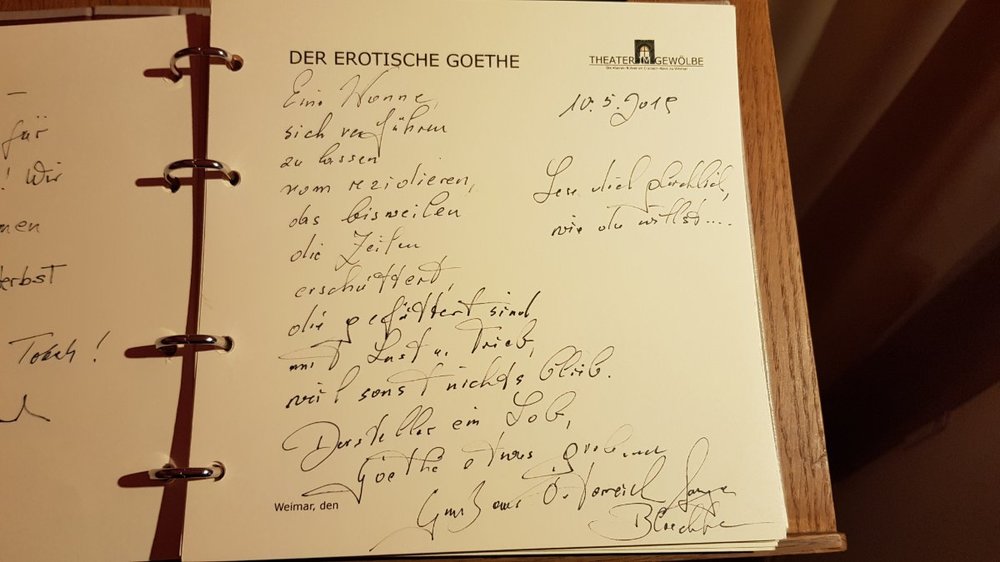 für
! Wir
nen
erbst
Toeh !
DER EROTISCHE GOETHE
THEATER IM GEWÖLBE
10. 5. 2019
Eine Nonne,
sich verführen
zu lassen
vom rezidieren,
das bisweilen
die Zeiten
erschüttert,
die gefüttert sind
mit Lust u. Trieb,
weil sonst nichts blieb.
Darsteller ein Lob,
Goethe etwas grob,
Gruß aus Österreich
Lese dich
wie du willst...
Weimar, den